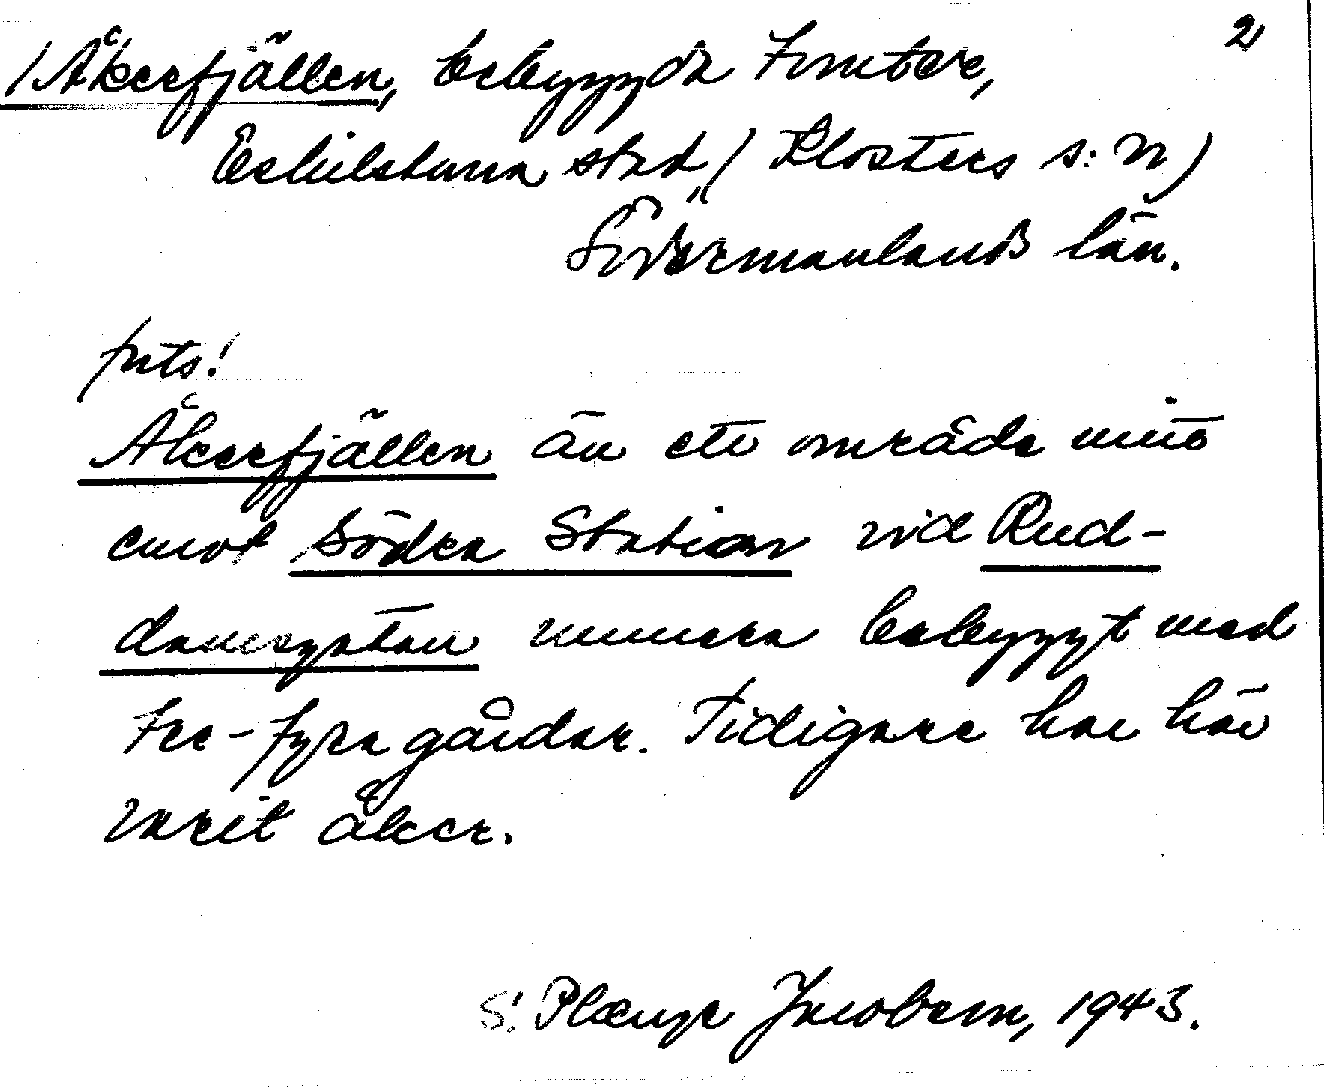 2
/Åkerfjällen, bebyggda tomter,
Eskilstuna stad, (Klosters s:n)
Södermanlands län.
puts!
Åkerfjällen är ett område mitt
emot Södra Station vid Rud-
damsgatan numera bebyggt med
tre-fyra gårdar. Tidigare har här
varit åker.
S: Jacobson, 1943.